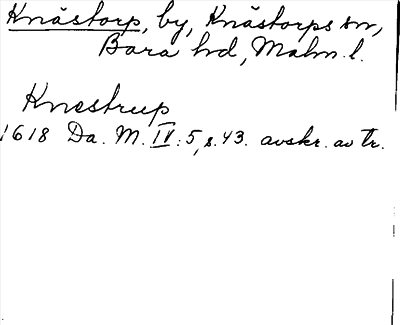 Knästorp, by, Knästorps sn,
Bara hd, Malm. l.
Knestrup
1618 Da. M. IV:5, s. 43. avskr. av tr.